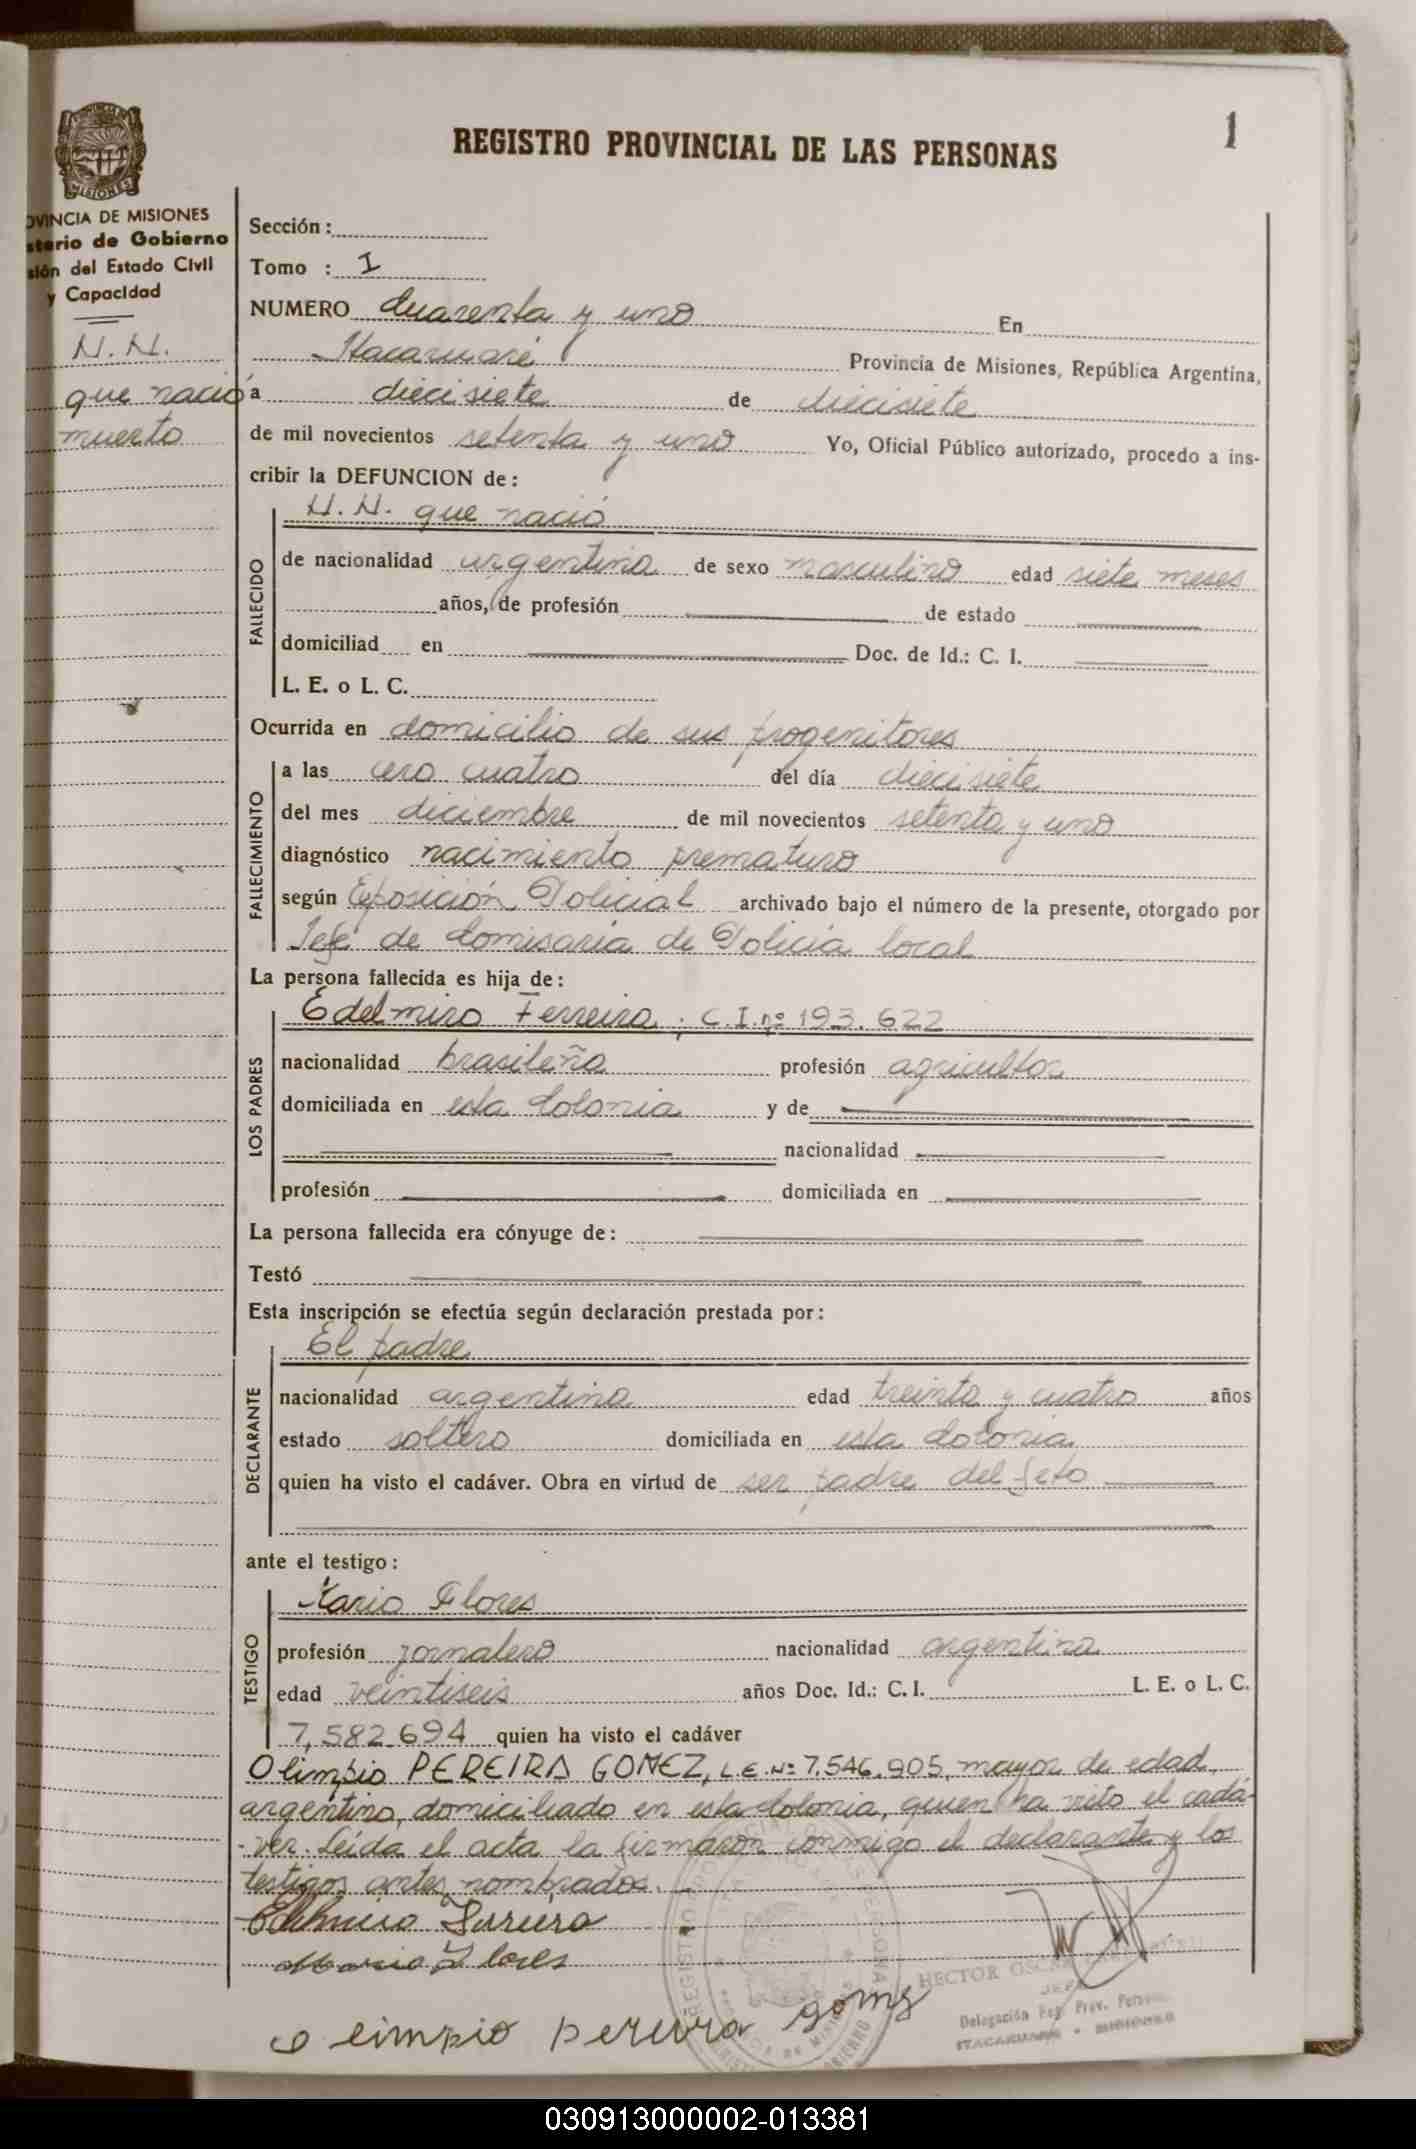 1
REGISTRO PROVINCIAL DE LAS PERSONAS
PROVINCIA DE
MISIONES
OVINCIA DE MISIONES
sterio de Gobierno
sión del Estado Civil
y Capacidad
N. N.
que nació
muerto
Sección :
Tomo : I
NUMERO Cuarenta y uno En
Itacaruaré Provincia de Misiones, República Argentina,
a diecisiete de diecisiete
de mil novecientos setenta y uno Yo, Oficial Público autorizado, procedo a ins-
cribir la DEFUNCION de :
N. N. que nació
FALLECIDO
de nacionalidad argentina de sexo masculino edad siete meses
años, de profesión de estado
domiciliad en Doc. de Id.: C. I.
L. E. o L. C.
Ocurrida en domicilio de sus progenitores
FALLECIMIENTO
a las cero cuatro del día diecisiete
del mes diciembre de mil novecientos setenta y uno
diagnóstico nacimiento prematuro
según Exposición Policial archivado bajo el número de la presente, otorgado por
Jefe de Comisaria de Policia local
La persona fallecida es hija de :
LOS PADRES
Edelmiro Ferreira ; C.I.nº 193.622
nacionalidad brasileña profesión agricultor
domiciliada en esta Colonia y de
nacionalidad
profesión domiciliada en
La persona fallecida era cónyuge de :
Testó
Esta inscripción se efectúa según declaración prestada por :
DECLARANTE
El padre
nacionalidad argentina edad treinta y cuatro años
estado soltero domiciliada en esta Colonia
quien ha visto el cadáver. Obra en virtud de ser padre del feto
ante el testigo :
TESTIGO
Mario Flores
profesión jornalero nacionalidad argentina
edad veintiseis años Doc. Id.: C. I. L. E. o L. C.
7,582.694 quien ha visto el cadáver
Olimpio PEREIRA GOMEZ, L.E.Nº 7.546.905, mayor de edad,
argentino, domiciliado en esta Colonia, quien ha visto el cadá-
ver. Leída el acta la firmaron conmigo el declarante y los
testigos antes nombrados.
Edelmiro Ferreira
Mario Flores
olimpio pereira gomz
HECTOR OSCAR
JEFE
Delegación Reg. Prov. Person.
ITACARUARE - MISIONES
030913000002-013381